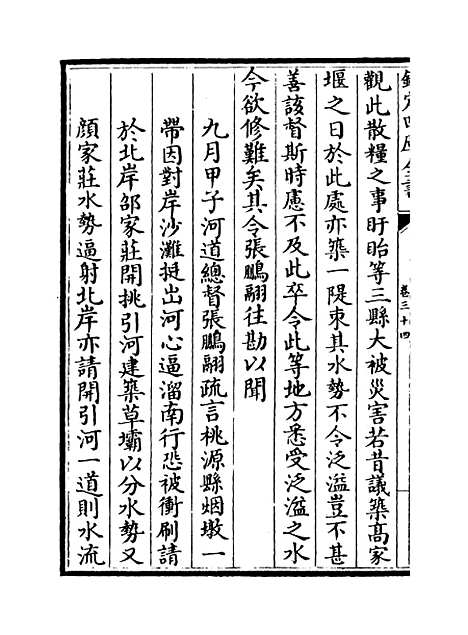 欽定四庫全書
卷三十四
觀此散糧之事盱眙等三縣大被災害若昔議築髙家
堰之日於此處亦築一隄束其水勢不令泛溢豈不甚
善該督斯時慮不及此卒令此等地方悉受泛溢之水
今欲修難矣其令張鵬翮往勘以聞
九月甲子河道總督張鵬翮疏言桃源縣烟墩一
帶因對岸沙灘挺出河心逼溜南行恐被衝刷請
於北岸邵家莊開挑引河建築草壩以分水勢又
顔家莊水勢逼射北岸亦請開引河一道則水流